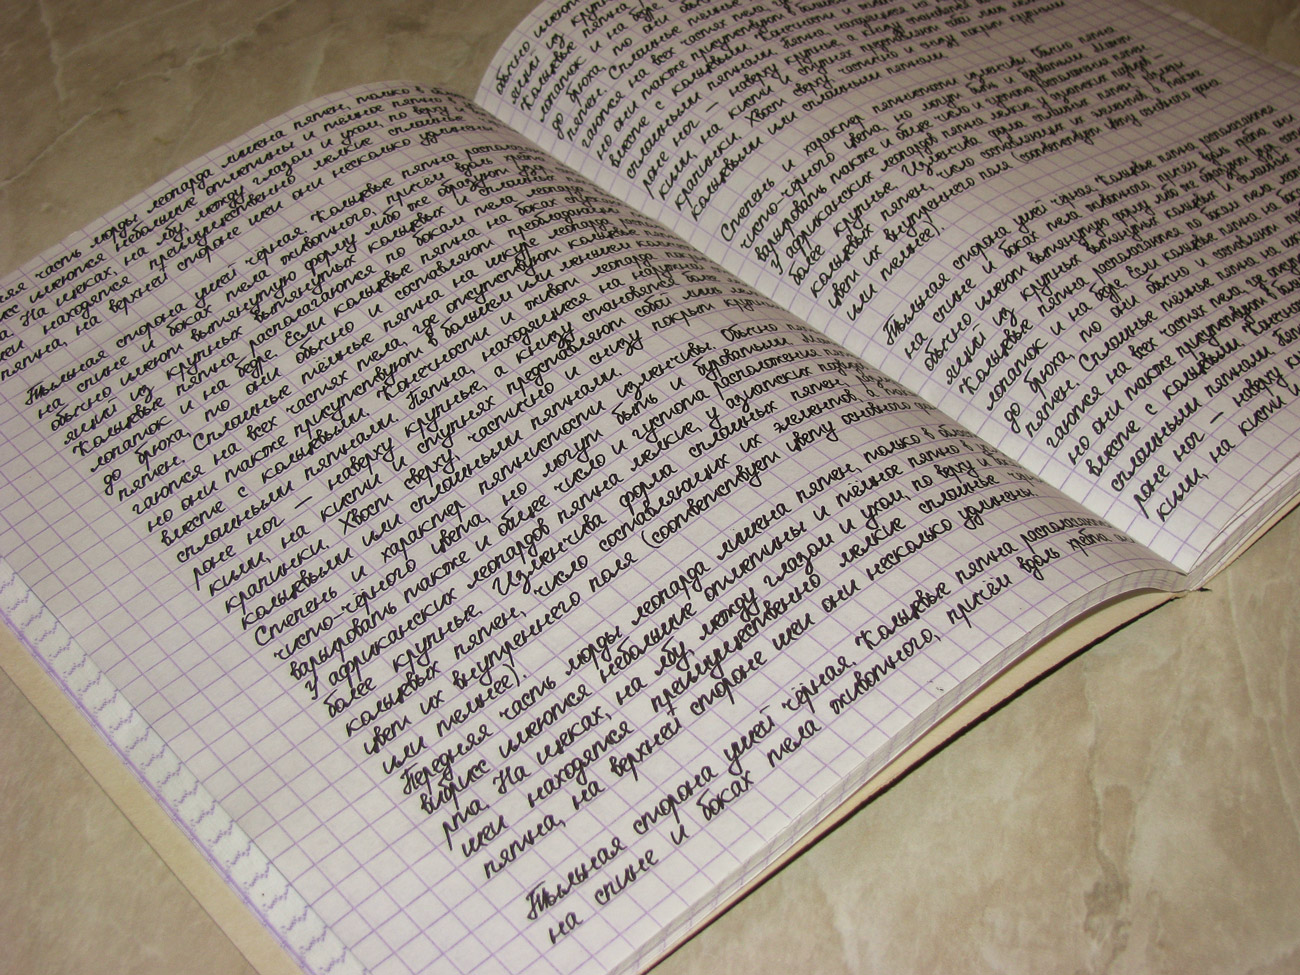 яя часть морды леопарда лишена пятен, только в
исс имеются небольшие отметины и тёмное пятно в
а. На щеках, на лбу, между глазом и ухом, по верху и
шеи находятся преимущественно мелкие сплошные
пятна, на верхней стороне шеи они несколько удлинены
Тыльная сторона ушей чёрная. Кольцевые пятна располо
на спине и боках тела животного, причём вдоль хребта
обычно имеют вытянутую форму либо же образуют
из крупных вытянутых кольцевых и сплошных
Кольцевые пятна располагаются по бокам тела
лопаток и на бедре. Если кольцевые пятна на боках
до брюха, то они обычно и составляют
пятен. Сплошные тёмные пятна на шкуре леопарда
гаются на всех частях тела, где отсутствуют кольцевые
но они также присутствуют в большем или меньшем
вместе с кольцевыми. Конечности и живот леопарда
сплошными пятнами. Пятна, находящиеся на наружной
роне ног — наверху крупные, а книзу становятся более
кими, на кисти и ступнях представляют собой лишь
крапинки. Хвост сверху, частично и снизу покрыт
кольцевыми или сплошными пятнами.
Степень и характер пятнистости изменчивы. Обычно
чисто-чёрного цвета, но могут быть и
варьировать также и общее число и густота расположения
У африканских леопардов пятна мелкие, у азиатских
более крупные. Изменчива форма сплошных пятен,
кольцевых пятен, число составляющих их элементов, а
цвет их внутреннего поля (соответствует цвету основного
или темнее).
Передняя часть морды леопарда лишена пятен, только в
вибрисс имеются небольшие отметины и тёмное пятно в
рта. На щеках, на лбу, между глазом и ухом, по верху и
шеи находятся преимущественно мелкие сплошные
пятна, на верхней стороне шеи они несколько удлинены
Тыльная сторона ушей чёрная. Кольцевые пятна
на спине и боках тела животного, причём вдоль хребта
обычно имеют
из
Кольцевые пятна
лопаток и на бедре
до брюха, то они
пятен. Сплошные тёмные
гаются на всех частях тела, где
но они также присутствуют в большем
вместе с кольцевыми. Конечности и живот
сплошными пятнами. Пятна, находящиеся на
роне ног — наверху крупные, а книзу становятся
кими, на кисти и ступнях представляют собой лишь
крапинки. Хвост сверху, частично и снизу покрыт крупными
кольцевыми или сплошными пятнами.
Степень и характер пятнистости изменчивы. Обычно пятна
чисто-чёрного цвета, но могут быть и
варьировать также и общее число и густота расположения
У африканских леопардов пятна мелкие, у азиатских
более крупные. Изменчива форма сплошных пятен,
кольцевых пятен, число составляющих их элементов, а также
цвет их внутреннего поля (соответствует цвету основного
или темнее).
Тыльная сторона ушей чёрная. Кольцевые пятна
на спине и боках тела животного, причём вдоль хребта они
обычно имеют вытянутую форму либо же образуют
из крупных вытянутых кольцевых и
Кольцевые пятна располагаются по бокам тела
лопаток и на бедре. Если кольцевые пятна на
до брюха, то они обычно и составляют
пятен. Сплошные тёмные пятна на
гаются на всех частях тела, где
но они также присутствуют в
вместе с кольцевыми. Конечности
сплошными пятнами.
роне ног — наверху
кими, на кисти и